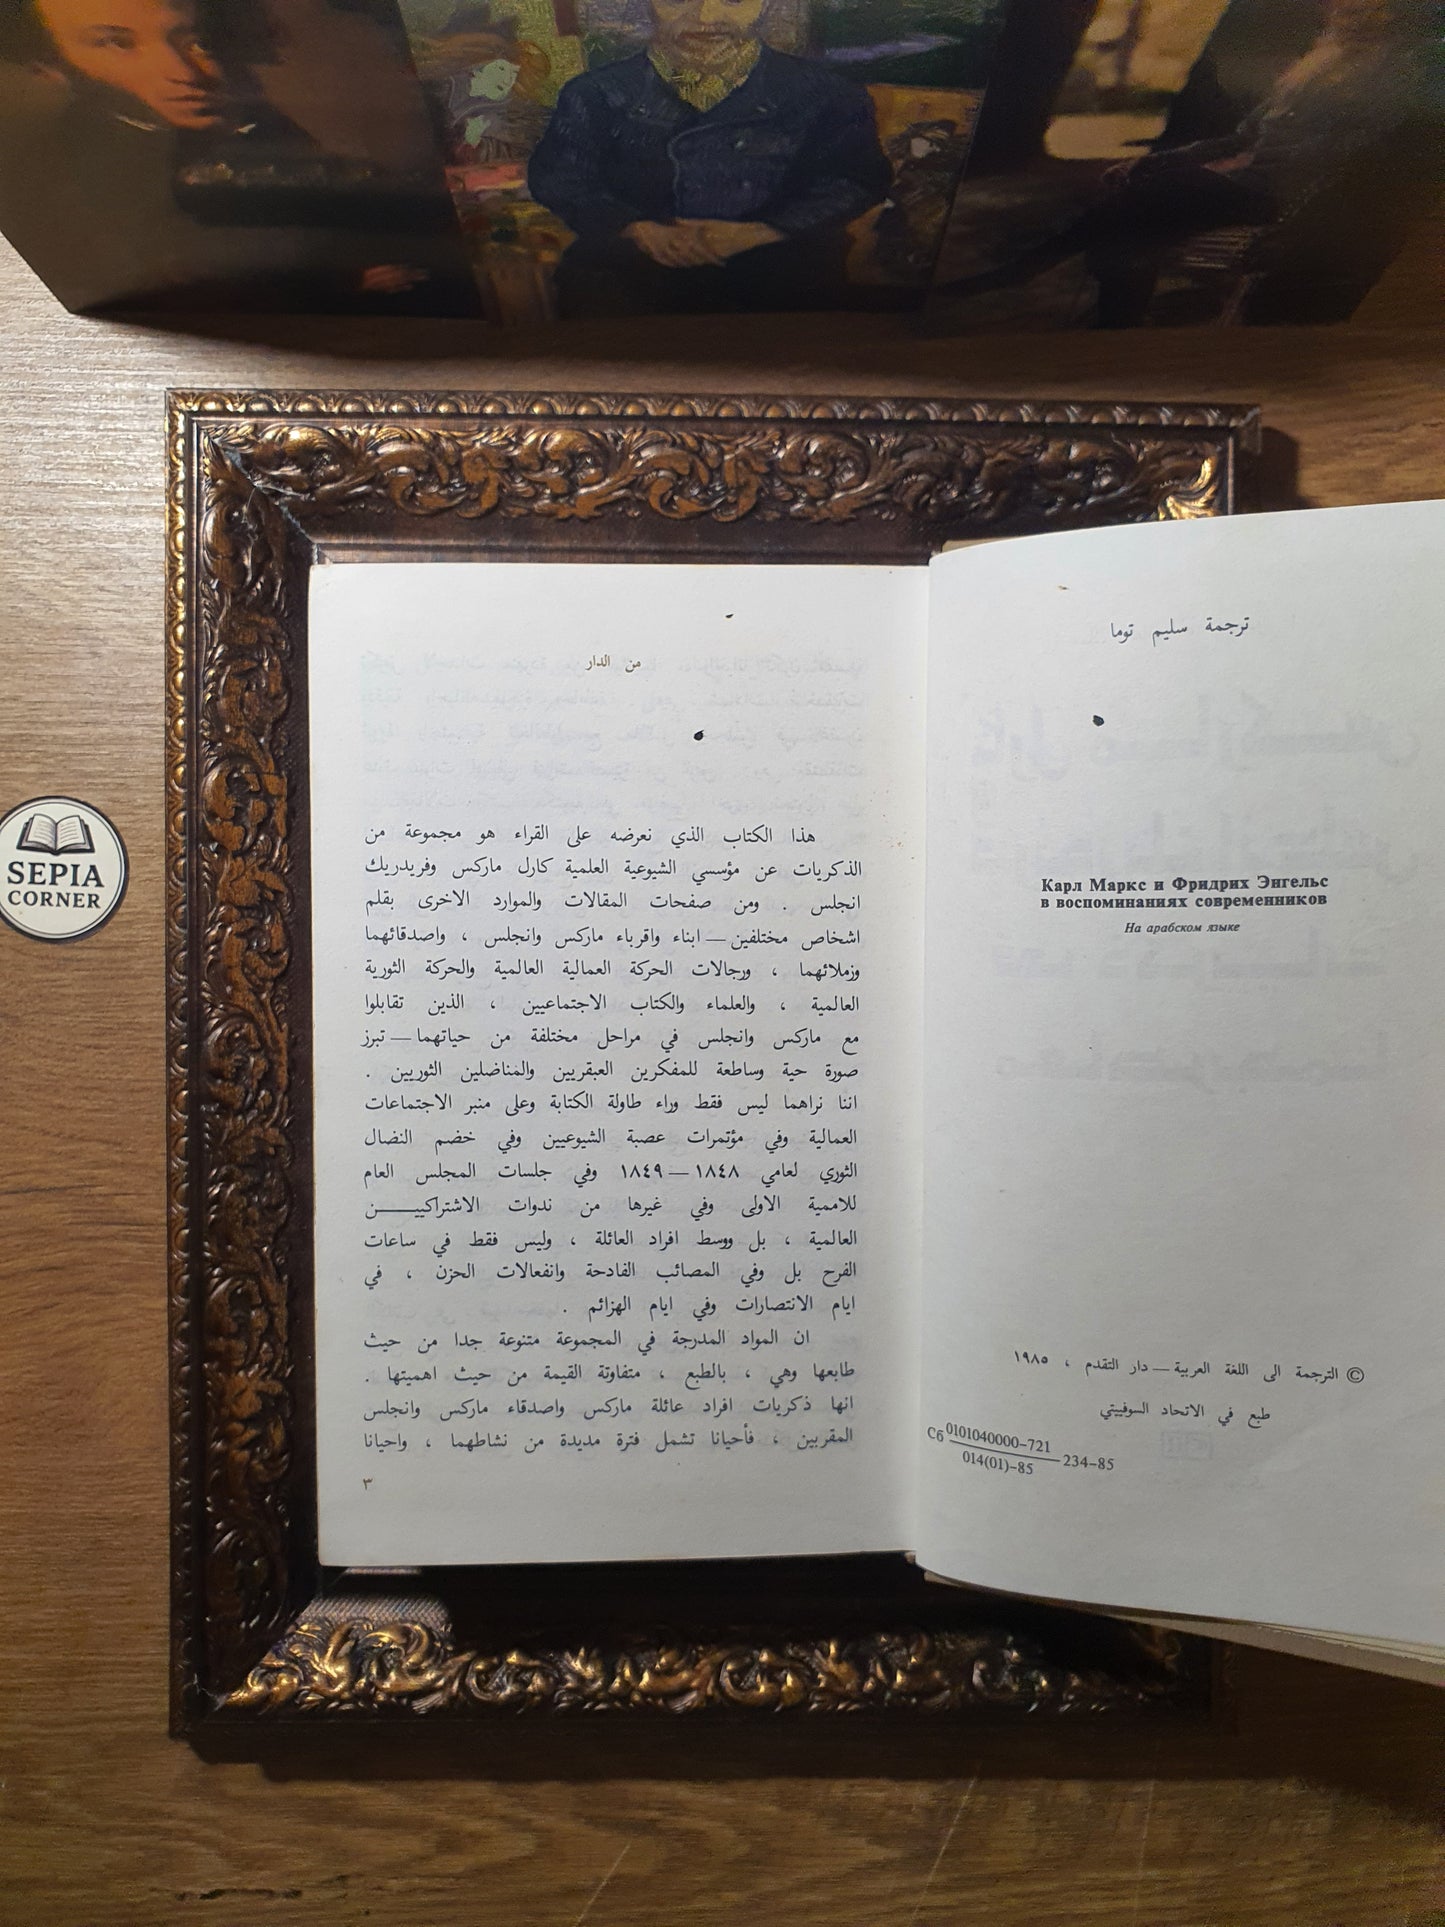 SEPIA
CORNER
ترجمة سليم توما
Карл Маркс и Фридрих Энгельс
в воспоминаниях современников
На арабском языке
© الترجمة الى اللغة العربية — دار التقدم ، ١٩٨٥
طبع في الاتحاد السوفييتي
Сб 0101040000-721
014(01)-85
—234-85
من الدار
هذا الكتاب الذي نعرضه على القراء هو مجموعة من
الذكريات عن مؤسسي الشيوعية العلمية كارل ماركس وفريدريك
انجلس . ومن صفحات المقالات والموارد الاخرى بقلم
اشخاص مختلفين — ابناء واقرباء ماركس وانجلس ، واصدقائهما
وزملائهما ، ورجالات الحركة العمالية العالمية والحركة الثورية
العالمية ، والعلماء والكتاب الاجتماعيين ، الذين تقابلوا
مع ماركس وانجلس في مراحل مختلفة من حياتهما — تبرز
صورة حية وساطعة للمفكرين العبقريين والمناضلين الثوريين .
اننا نراهما ليس فقط وراء طاولة الكتابة وعلى منبر الاجتماعات
العمالية وفي مؤتمرات عصبة الشيوعيين وفي خضم النضال
الثوري لعامي ١٨٤٨ — ١٨٤٩ وفي جلسات المجلس العام
للاممية الاولى وفي غيرها من ندوات الاشتراكيـــــن
العالمية ، بل ووسط افراد العائلة ، وليس فقط في ساعات
الفرح بل وفي المصائب الفادحة وانفعالات الحزن ، في
ايام الانتصارات وفي ايام الهزائم .
ان المواد المدرجة في المجموعة متنوعة جدا من حيث
طابعها وهي ، بالطبع ، متفاوتة القيمة من حيث اهميتها .
انها ذكريات افراد عائلة ماركس واصدقاء ماركس وانجلس
المقربين ، فأحيانا تشمل فترة مديدة من نشاطهما ، واحيانا
٣